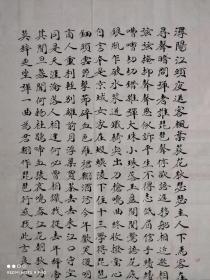 潯陽江頭夜送客楓葉荻花秋瑟瑟主人下馬客在
尋聲暗問彈者誰琵琶聲停欲語遲移船相近邀相
弦弦掩抑聲聲思似訴平生不得志低眉信手續續
嘈嘈切切錯雜彈大珠小珠落玉盤間關鶯語花底
銀瓶乍破水漿迸鐵騎突出刀槍鳴曲終收撥當心
自言本是京城女家在蝦蟆陵下住十三學得琵琶
鈿頭雲篦擊節碎血色羅裙翻酒污今年歡笑復明
商人重利輕別離前月浮梁買茶去去來江口守空
同是天涯淪落人相逢何必曾相識我從去年辭帝
其間旦暮聞何物杜鵑啼血猿哀鳴春江花朝秋
莫辭更坐彈一曲為君翻作琵琶行感我此言